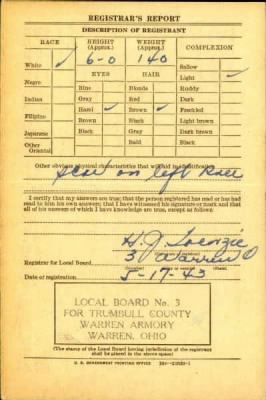 REGISTRAR'S REPORT
DESCRIPTION OF REGISTRANT
RACE HEIGHT (Approx.) WEIGHT (Approx.) COMPLEXION
White ✓ 6-0 140 Sallow
EYES HAIR Light ✓
Negro Blue Blonde Ruddy
Indian Gray Red Dark
Filipino Hazel ✓ Brown ✓ Freckled
Brown Black Light brown
Japanese Black Gray Dark brown
Other Oriental Bald Black
Other obvious physical characteristics that will aid in identification
Scar on left Knee
I certify that my answers are true; that the person registered has read or has had
read to him his own answers; that I have witnessed his signature or mark and that
all of his answers of which I have knowledge are true, except as follows:
H. J.
Registrar for Local Board 3 Warren O
Date of registration 5-17-43
LOCAL BOARD No. 3
FOR TRUMBULL COUNTY
WARREN ARMORY
WARREN, OHIO
(The stamp of the Local Board having jurisdiction of the registrant
shall be placed in the above space)
U. S. GOVERNMENT PRINTING OFFICE